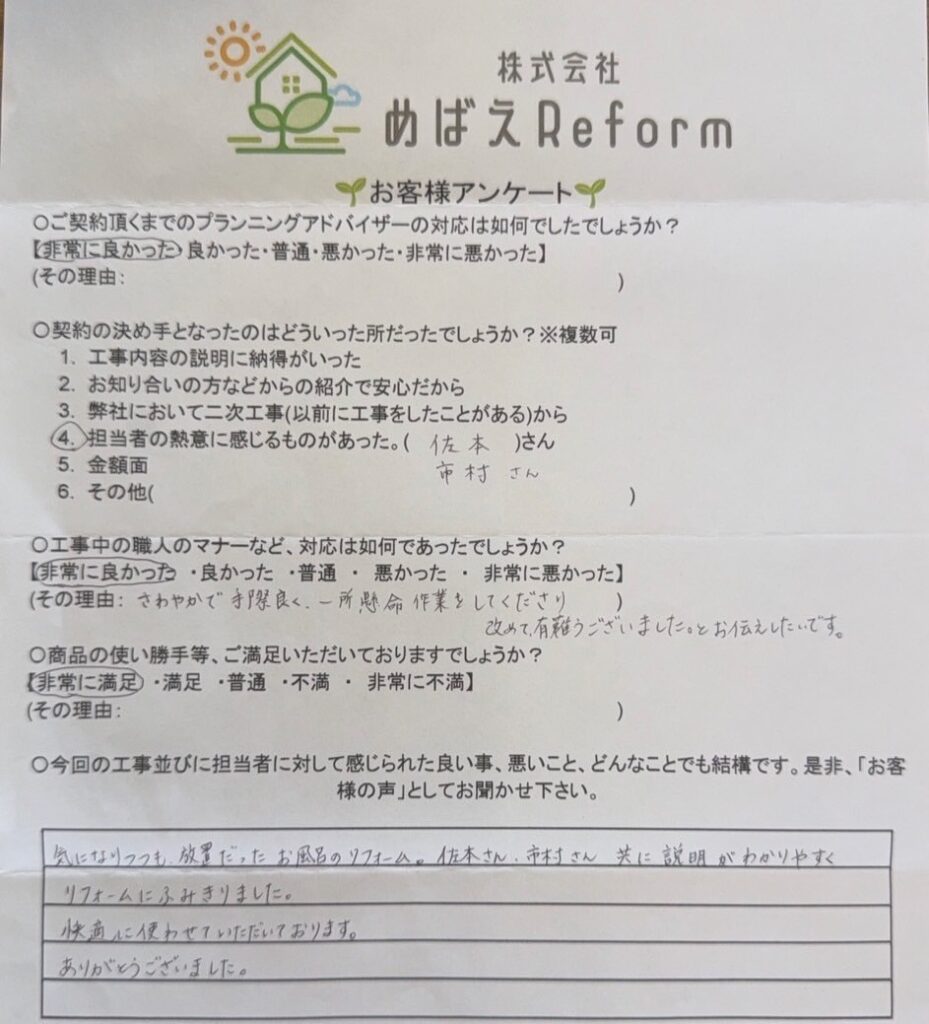 株式会社
めばえReform
お客様アンケート
〇ご契約頂くまでのプランニングアドバイザーの対応は如何でしたでしょうか？
【非常に良かった・良かった・普通・悪かった・非常に悪かった】
(その理由： )
〇契約の決め手となったのはどういった所だったでしょうか？※複数可
1. 工事内容の説明に納得がいった
2. お知り合いの方などからの紹介で安心だから
3. 弊社において二次工事(以前に工事をしたことがある)から
4. 担当者の熱意に感じるものがあった。( 佐本 )さん
市村 さん
5. 金額面
6. その他( )
〇工事中の職人のマナーなど、対応は如何であったでしょうか？
【非常に良かった ・良かった ・普通 ・ 悪かった ・ 非常に悪かった】
(その理由： さわやかで手際良く、一所懸命作業をしてくださり )
改めて、有難うございました。とお伝えしたいです。
〇商品の使い勝手等、ご満足いただいておりますでしょうか？
【非常に満足 ・満足 ・普通 ・不満 ・ 非常に不満】
(その理由： )
〇今回の工事並びに担当者に対して感じられた良い事、悪いこと、どんなことでも結構です。是非、「お客
様の声」としてお聞かせ下さい。
気になりつつも、放置だったお風呂のリフォーム。佐本さん、市村さん 共に説明がわかりやすく
リフォームにふみきりました。
快適に使わせていただいております。
ありがとうございました。